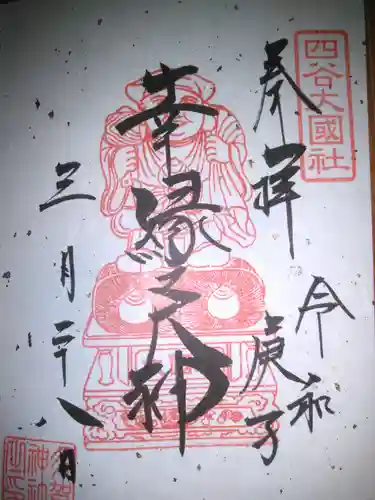 四谷大國社
奉拝
令和
庚子
幸縁之神
三月二十八日